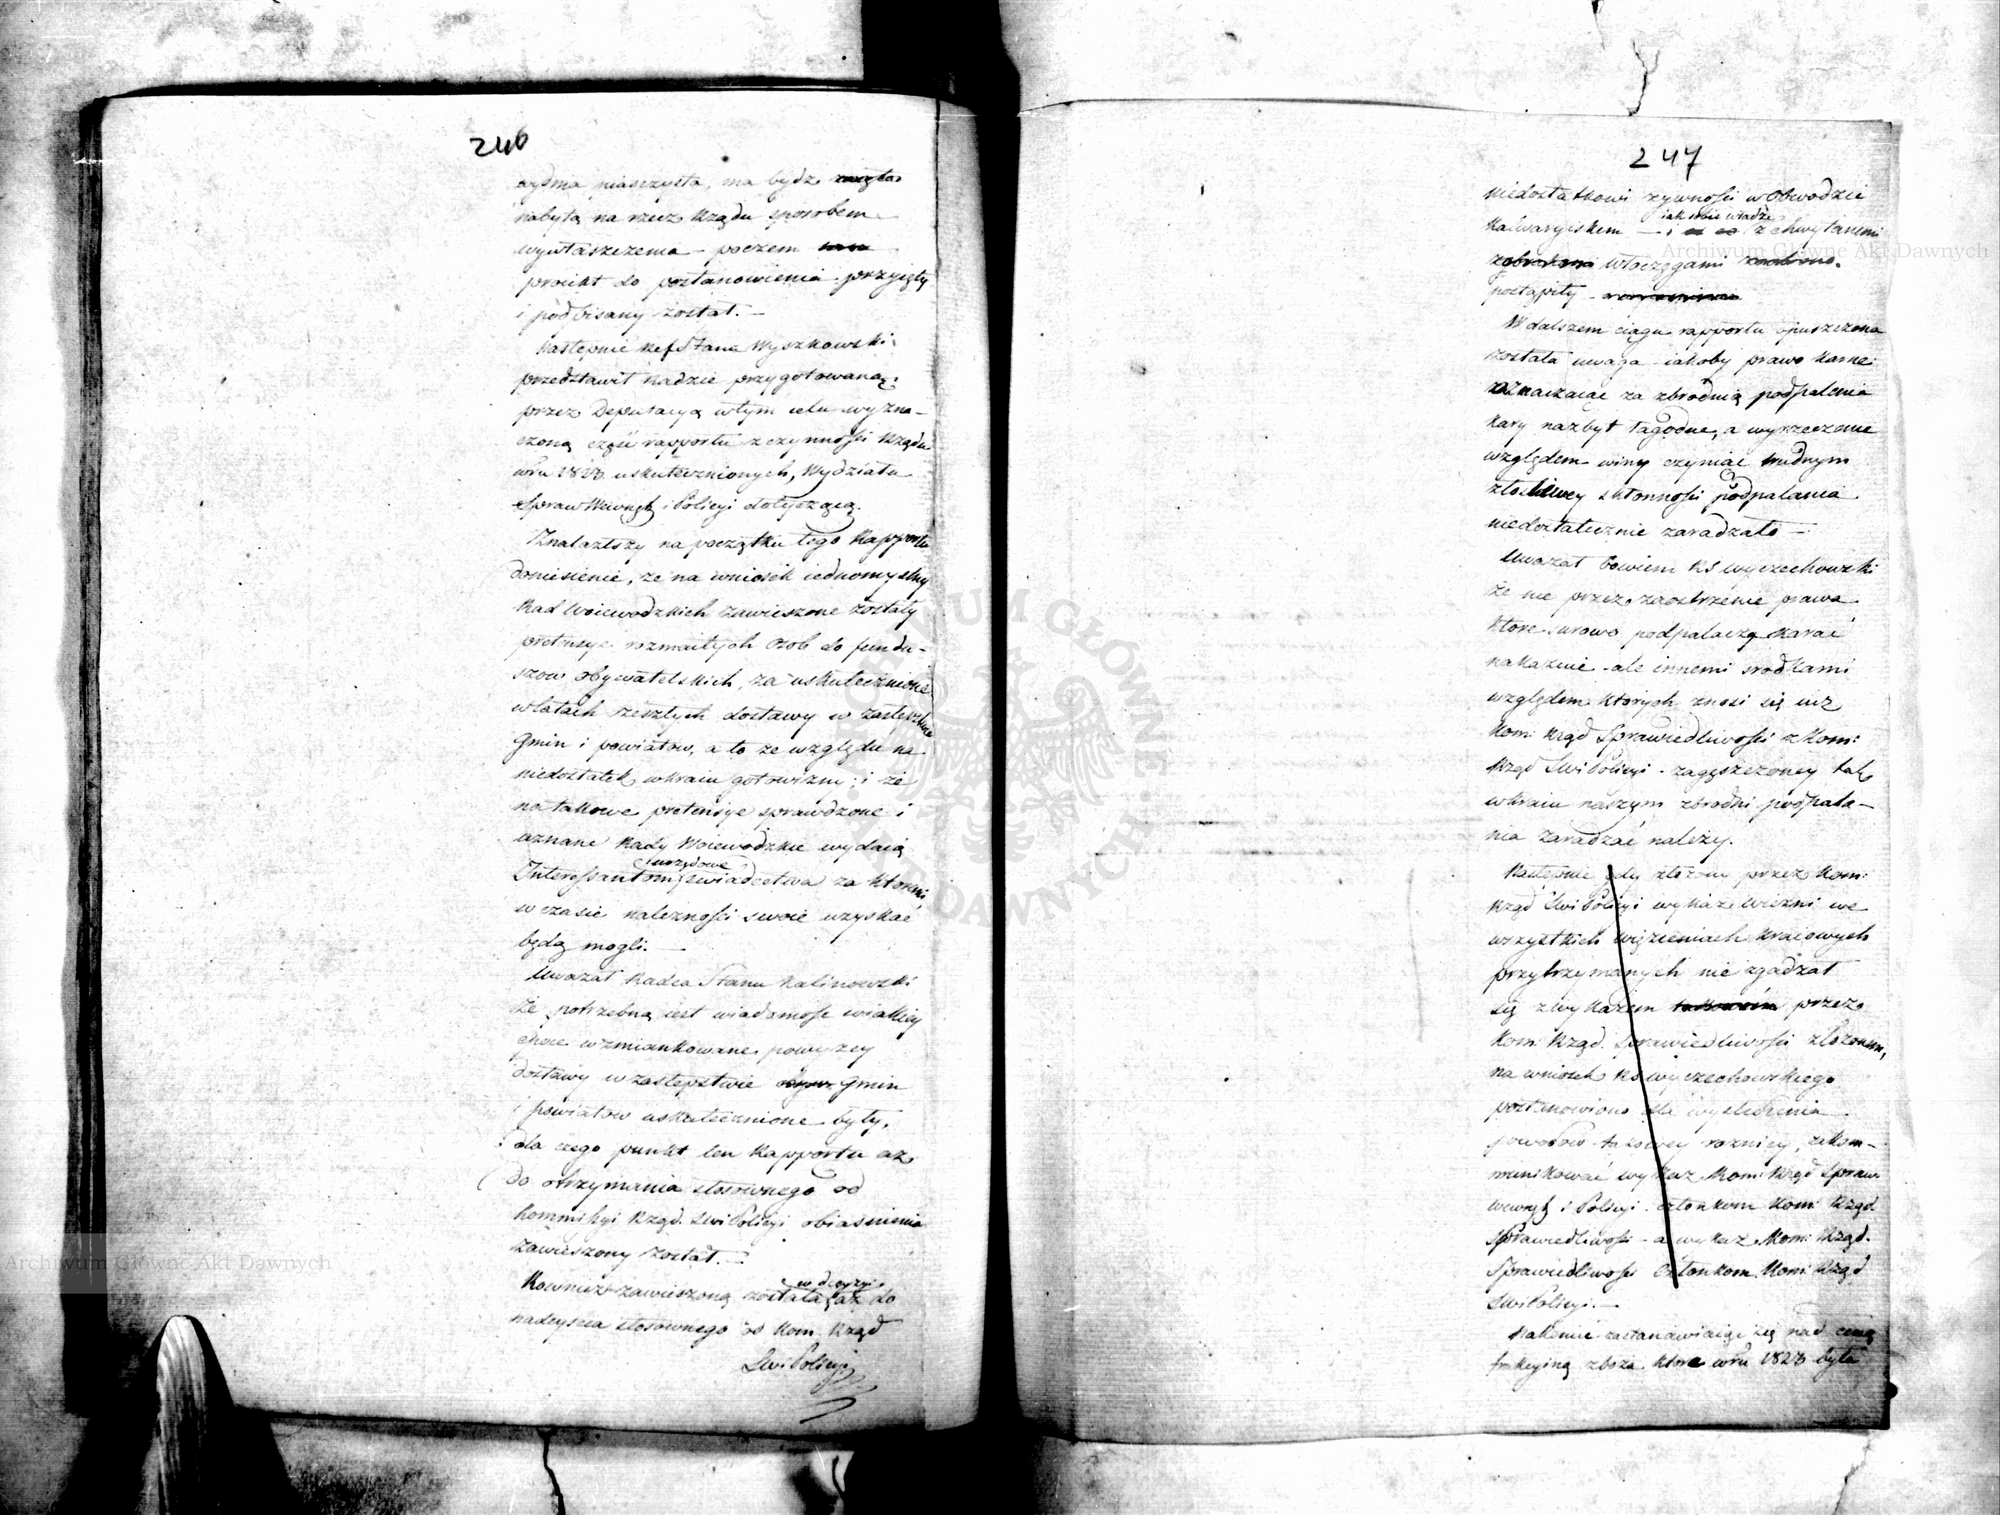 246
wydma piasczysta, ma bydź
nabytą na rzecz Rządu sposobem
wywłaszczenia – poczem
proiekt do postanowienia przyięty
i podpisany został. –
Następnie Ref Stanu Wyszkowski
przedstawił Radzie przygotowaną
przez Deputacyą wtym celu wyzna-
czoną część rapportu z czynności Rządu
wru 1823 uskutecznionych, Wydziału
Spraw Wewnęt i Policyi dotyczącą.
Znalazłszy na początku tego Rapportu
doniesienie, że na wniosek iednomyslny
Rad Woiewodzkich zawieszone zostały
pretensye rozmaitych Osob do fundu-
szow obywatelskich, za uskutecznione
wlatach zeszłych dostawy w zastępstwie
Gmin i powiatow, a to ze względu na
niedostatek wkraiu gotowizny; i że
na takowe pretensye sprawdzone i
uznane Rady Woiewodzkie wydaią
urzędowe
Interessantom swiadectwa za ktoremi
w czasie należności swoie uzyskać
będą mogli. –
Uważał Radca Stanu Kalinowski
że potrzebną iest wiadomość w iakiey
epoce wzmiankowane powyżey
dostawy w zastępstwie Gmin
i powiatow uskutecznione były,
dla czego punkt ten Rapportu aż
do otrzymania stosownego od
Kommissyi Rząd. SWiPolicyi obiasnienia
zawieszony został. –
w decyzyi
Rownież zawieszoną została aż do
nadeyscia stosownego od Kom Rząd
SWiPolicyi
247
niedostatkowi żywności w Obwodzie
jak sobie władze
Kalwaryiskem – i z chwytanemi
włoczęgami
postąpiły
W dalszem ciągu rapportu opuszczona
została uwaga iakoby prawo karne
oznaczaiąc za zbrodnią podpalenia
kary nazbyt łagodne, a wyrzeczenie
względem winy czyniąc trudnym
złosliwey skłonności podpalania
niedostatecznie zaradzało –
Uważał bowiem RS Wyczechowski
że nie przez zaostrzenie prawa
ktore surowo podpalaczy karać
nakazuie ale innemi srodkami
względem ktorych znosi się iuż
Kom: Rząd Sprawiedliwości z Kom:
Rząd SWiPolicyi – zagęszczoney tak
wkraiu naszym zbrodni podpala-
nia zaradzać należy.
Następnie gdy złożony przez Kom:
Rząd SWiPolicyi wykaz więzni we
wszystkich więzieniach kraiowych
przytrzymanych nie zgadzał
się z wykazem przez
Kom: Rząd. Sprawiedliwości złożonem,
na wniosek RS Wyczechowskiego
postanowiono dla wysledzenia
powodow takowey rożnicy, zakom-
munikować wykaz Kom: Rząd Spraw
Wewnęt i Policyi członkom Kom: Rząd
Sprawiedliwości – a wykaz Kom: Rząd.
Sprawiedliwości Członkom Kom: Rząd
SWiPolicyi. –
Nakoniec zastanawiaiąc się nad ceną
frakcyiną zboża ktora wru 1823 była
Archiwum Główne Akt Dawnych
Archiwum Główne Akt Dawnych
ARCHIWUM GŁÓWNE AKT DAWNYCH